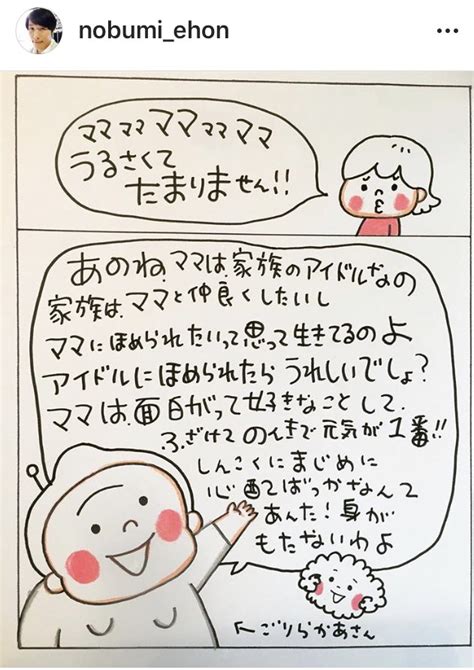 nobumi_ehon
ママママママママママ
うるさくて
たまりません!!
あのね、ママは、家族のアイドルなの
家族は、ママと仲良くしたいし
ママにほめられたいって思って生きてるのよ
アイドルにほめられたら うれしいでしょ?
ママは、面白がって好きなことして、
ふざけて のんきで 元気が 1番!!
しんこくにまじめに
心配ばっかなんて
あんた!身が
もたないわよ
←ごりらかあさん